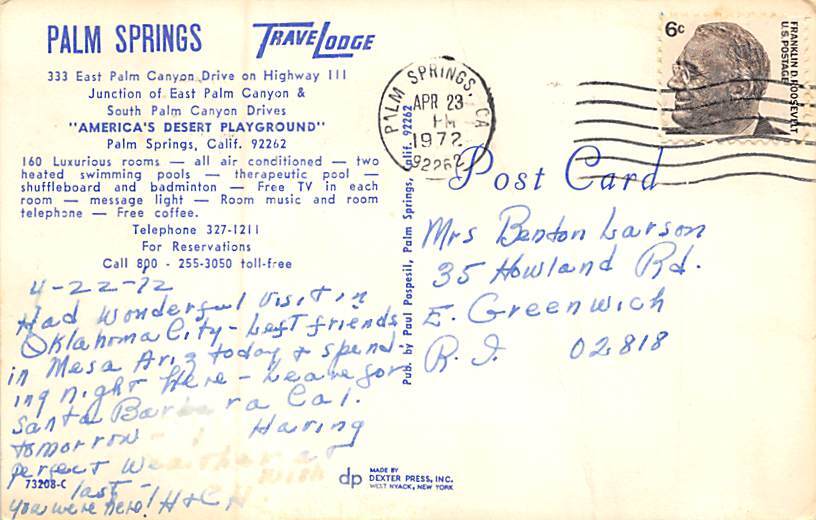 PALM SPRINGS TRAVELODGE
333 East Palm Canyon Drive on Highway 111
Junction of East Palm Canyon &
South Palm Canyon Drives
"AMERICA'S DESERT PLAYGROUND"
Palm Springs, Calif. 92262
160 Luxurious rooms — all air conditioned — two
heated swimming pools — therapeutic pool —
shuffleboard and badminton — Free TV in each
room — message light — Room music and room
telephone — Free coffee.
Telephone 327-1211
For Reservations
Call 800 - 255-3050 toll-free
4-22-72
Had wonderful visit in
Oklahoma City - Left friends
in Mesa Ariz today & spend-
ing night here - Leave for
Santa Barbara Cal.
tomorrow - Having
perfect weather at
last - wish
you were here! H & C H
73208-C
Pub. by Paul Pospesil, Palm Springs, Calif. 92262
PALM SPRINGS, CA
APR 23
PM
1972
92262
6c
FRANKLIN D. ROOSEVELT
U.S. POSTAGE
Post Card
Mrs Benton Larson
35 Howland Rd.
E. Greenwich
R. I. 02818
dp MADE BY
DEXTER PRESS, INC.
WEST NYACK, NEW YORK